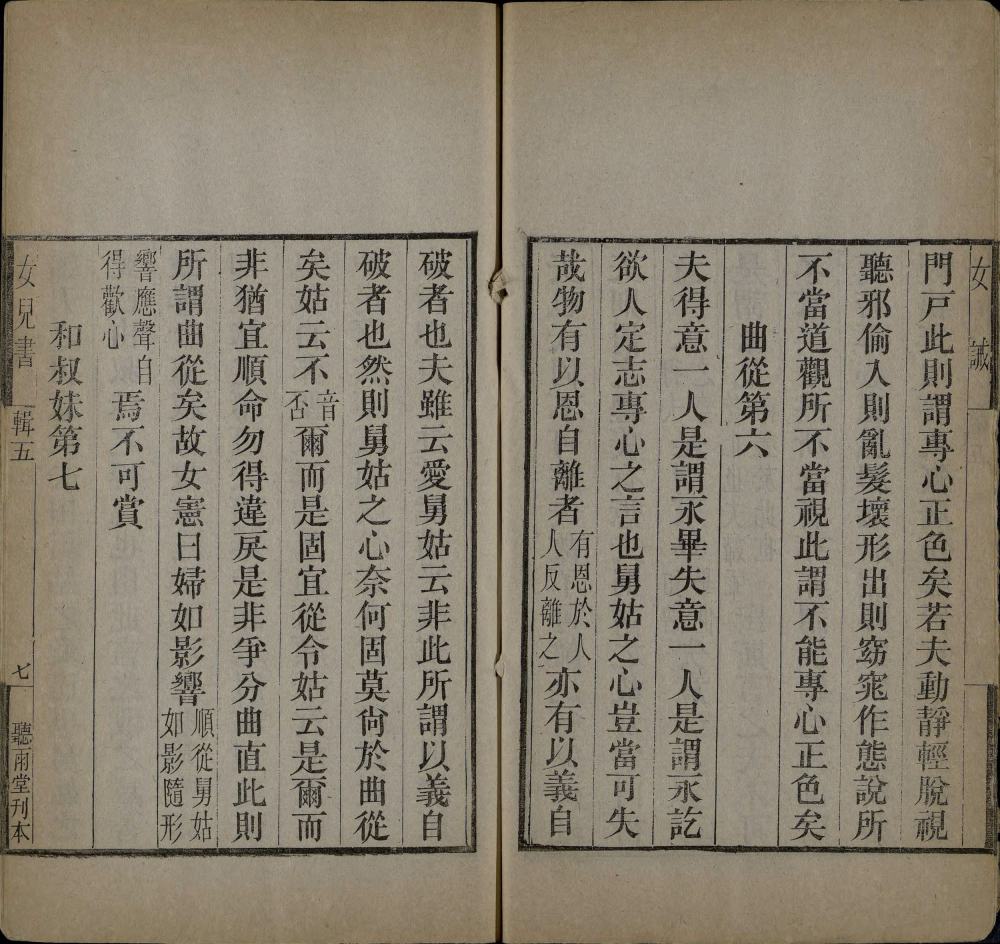 女誡
門戸此則謂專心正色矣若夫動靜輕脫視
聽邪偷入則亂髮壞形出則窈窕作態說所
不當道觀所不當視此謂不能專心正色矣
曲從第六
夫得意一人是謂永畢失意一人是謂永訖
欲人定志專心之言也舅姑之心豈當可失
哉物有以恩自離者有恩於人人反離之亦有以義自
破者也夫雖云愛舅姑云非此所謂以義自
破者也然則舅姑之心奈何固莫尙於曲從
矣姑云不音否爾而是固宜從令姑云是爾而
非猶宜順命勿得違戾是非爭分曲直此則
所謂曲從矣故女憲曰婦如影響順從舅姑如影隨形
響應聲自得歡心焉不可賞
和叔妹第七
女兒書 輯五 七 聽雨堂刊本